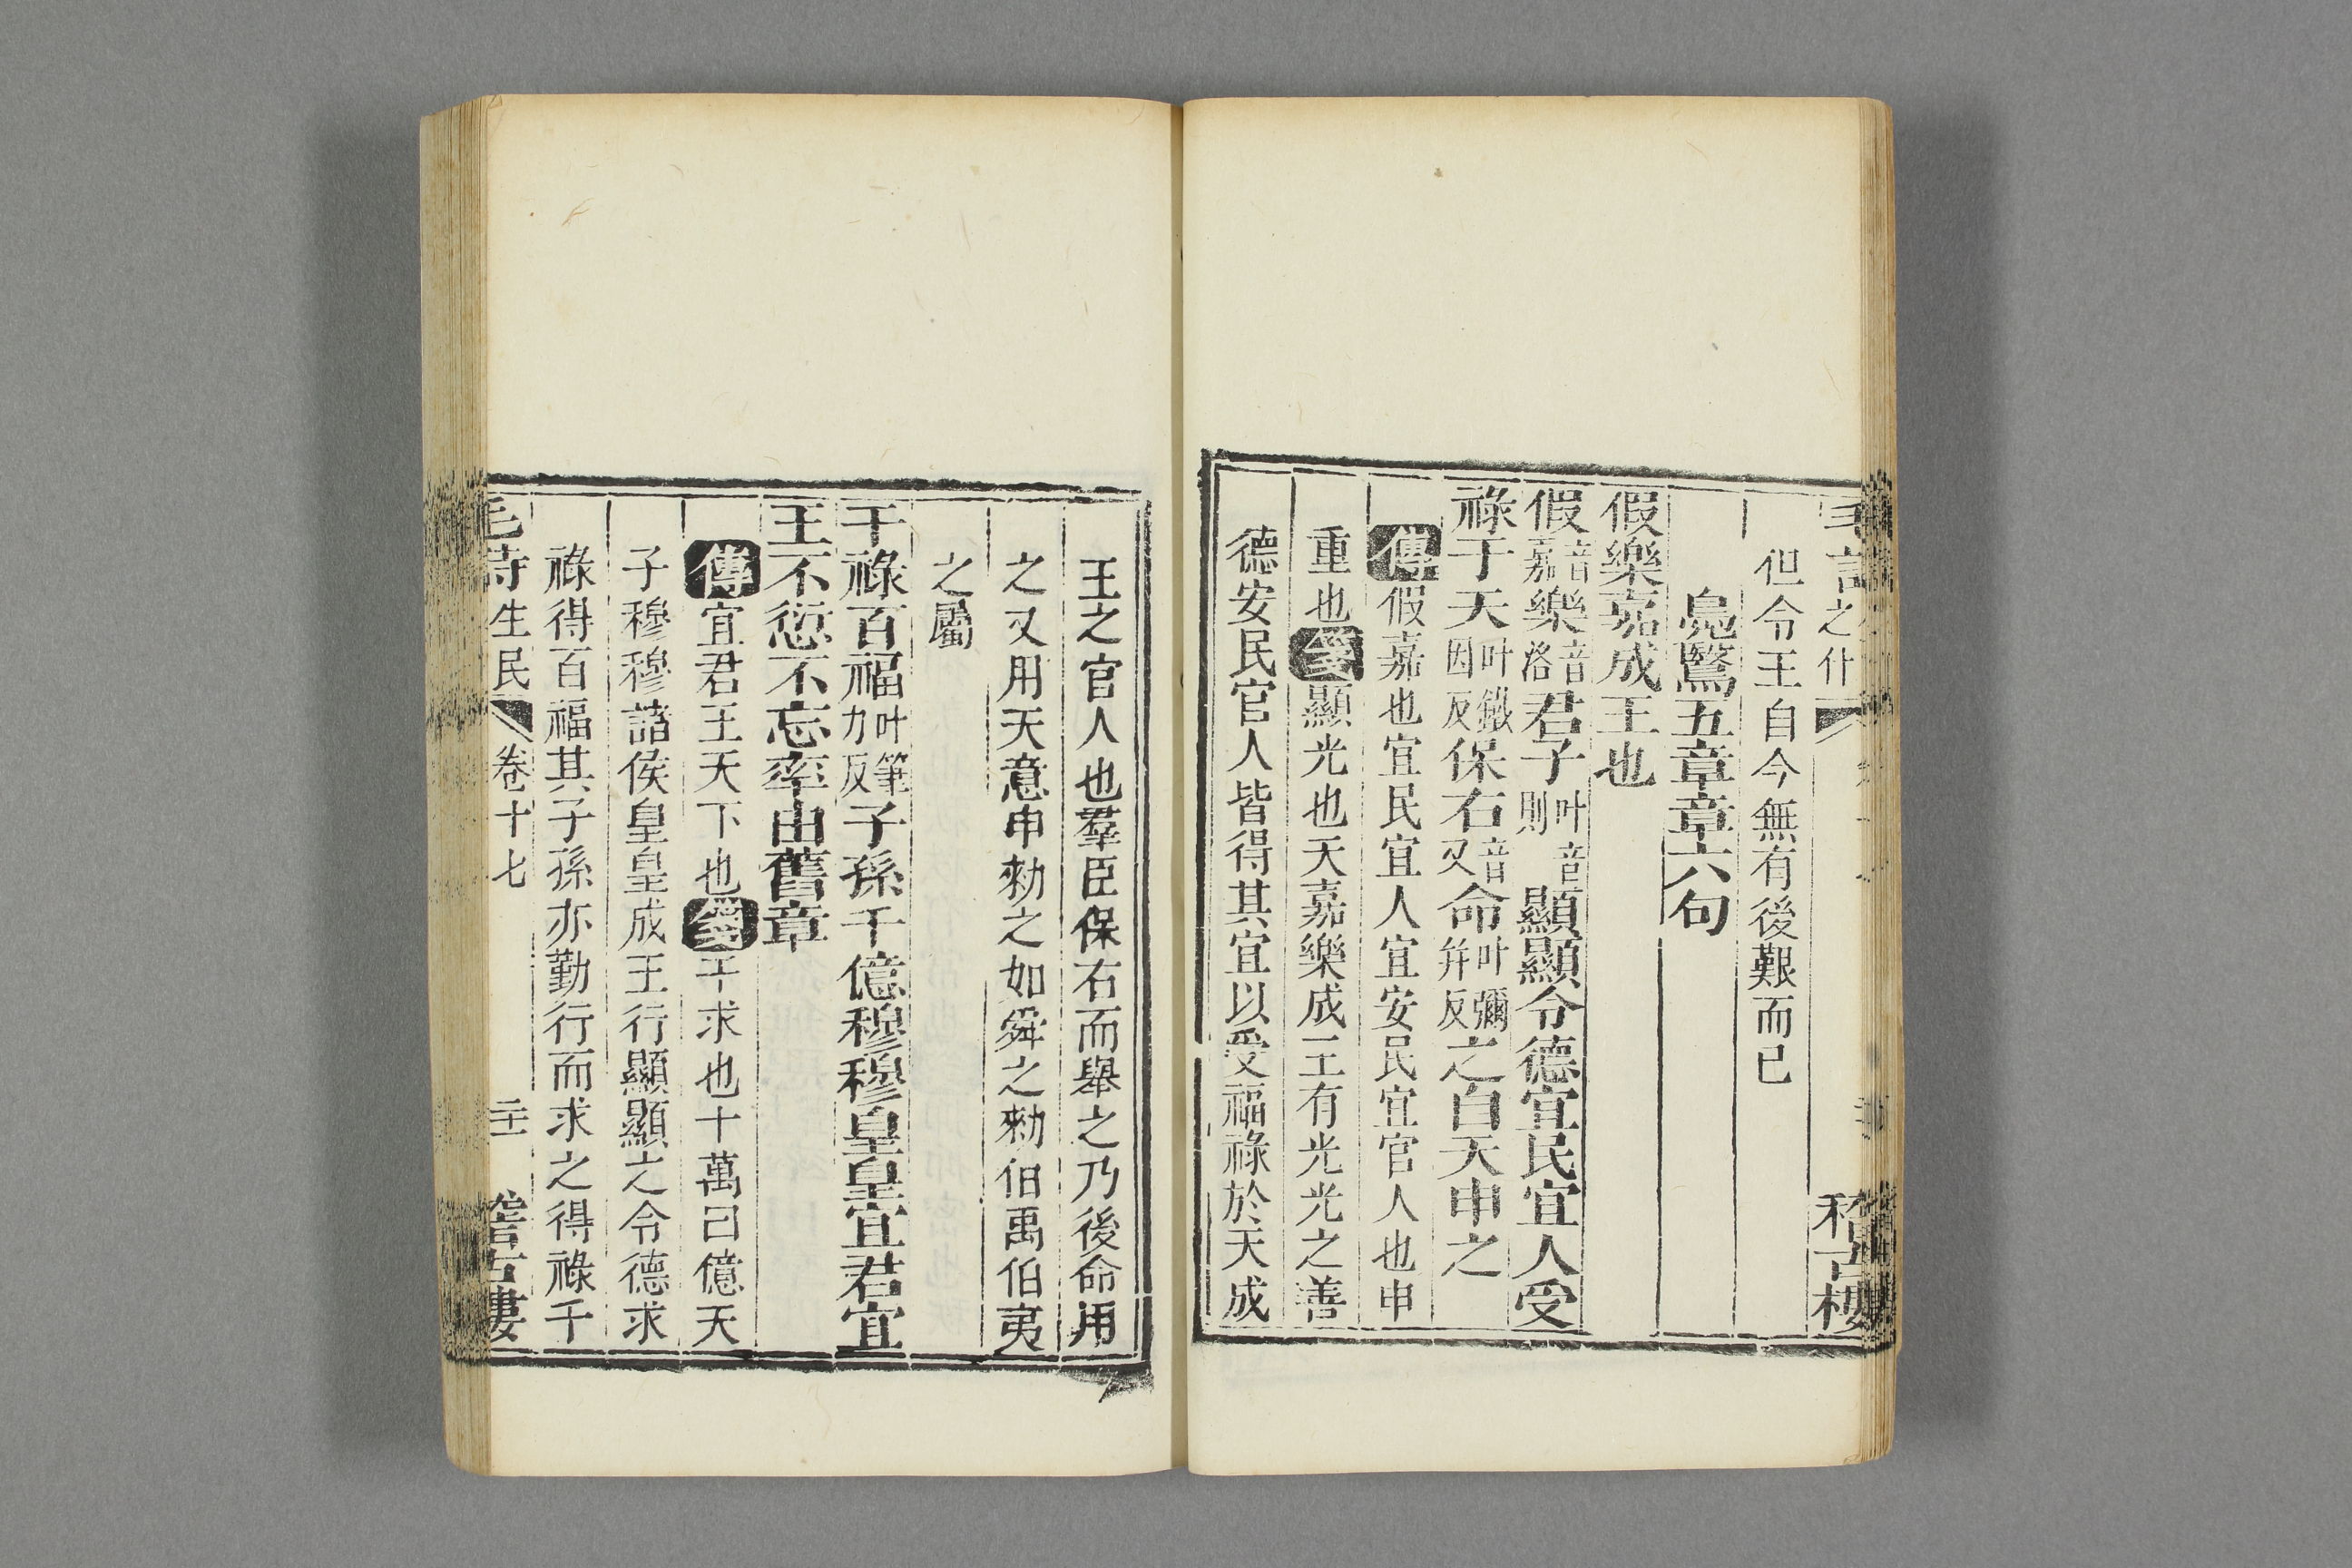 之什
稽古樓
但令王自今無有後艱而已
鳧鷖五章章六句
假樂嘉成王也
假音嘉樂音洛君子叶音則顯顯令德宜民宜人受
祿于天叶鐵因反保右音又命叶彌并反之自天申之
傳假嘉也宜民宜人宜安民宜官人也申
重也箋顯光也天嘉樂成王有光光之善
德安民官人皆得其宜以受福祿於天成
王之官人也羣臣保右而舉之乃後命用
之又用天意申勑之如舜之勑伯禹伯夷
之屬
干祿百福叶筆力反子孫千億穆穆皇皇宜君宜
王不愆不忘率由舊章
傳宜君王天下也箋干求也十萬曰億天
子穆穆諸侯皇皇成王行顯顯之令德求
祿得百福其子孫亦勤行而求之得祿千
毛詩生民 卷十七 二十一 稽古樓